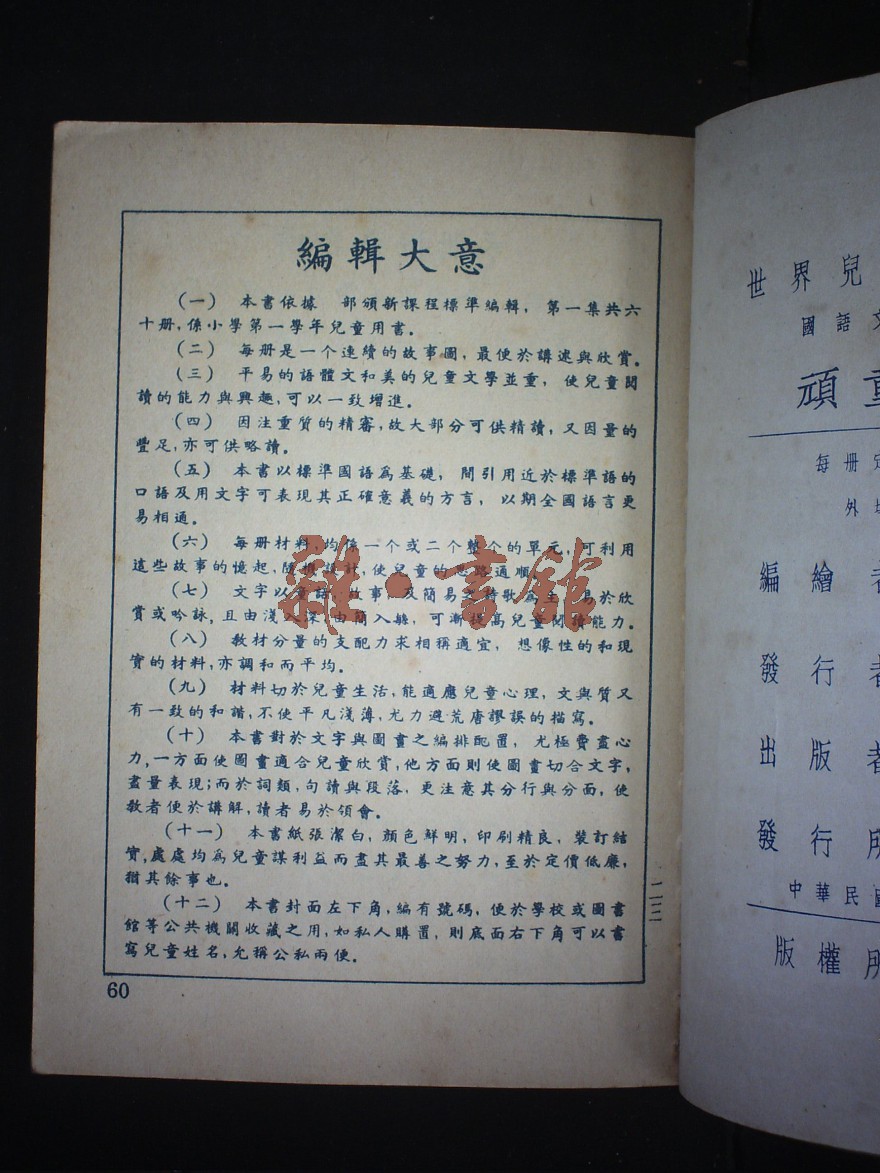 編輯大意
(一) 本書依據 部頒新課程標準編輯, 第一集共六
十册,係小學第一學年兒童用書。
(二) 每册是一个連續的故事圖, 最便於講述與欣賞。
(三) 平易的語體文和美的兒童文學並重, 使兒童閱
讀的能力與興趣,可以一致增進。
(四) 因注重質的精審,故大部分可供精讀,又因量的
豐足,亦可供略讀。
(五) 本書以標準國語為基礎, 間引用近於標準語的
口語及用文字可表現其正確意義的方言, 以期全國語言更
易相通。
(六) 每册材料,均係一个或二个整个的單元,可利用
這些故事的憶起,隨機設計,使兒童的思路通順。
(七) 文字以童話,故事,及簡易之詩歌為主,易於欣
賞或吟詠,且由淺入深,由簡入緐,可漸提高兒童閱讀能力。
(八) 教材分量的支配力求相稱適宜, 想像性的和現
實的材料,亦調和而平均。
(九) 材料切於兒童生活,能適應兒童心理,文與質又
有一致的和諧,不使平凡淺薄,尤力避荒唐謬誤的描寫。
(十) 本書對於文字與圖畫之編排配置, 尤極費盡心
力,一方面使圖畫適合兒童欣賞,他方面則使圖畫切合文字,
盡量表現;而於詞類,句讀與段落, 更注意其分行與分面,使
教者便於講解,讀者易於領會。
(十一) 本書紙張潔白,顏色鮮明,印刷精良,裝訂結
實,處處均為兒童謀利益而盡其最善之努力,至於定價低廉,
猶其餘事也。
(十二) 本書封面左下角,編有號碼,便於學校或圖書
館等公共機關收藏之用,如私人購置,則底面右下角可以書
寫兒童姓名,允稱公私兩便。
60
雜·書館
世界兒
國語文
頑童
每册定
外埠
編繪者
發行者
出版者
發行所
中華民國
版權所